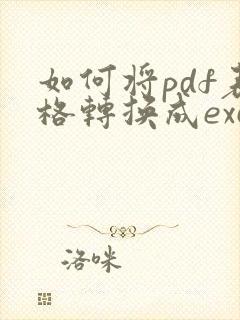 如何将pdf表
格轉換成exc
洛咪